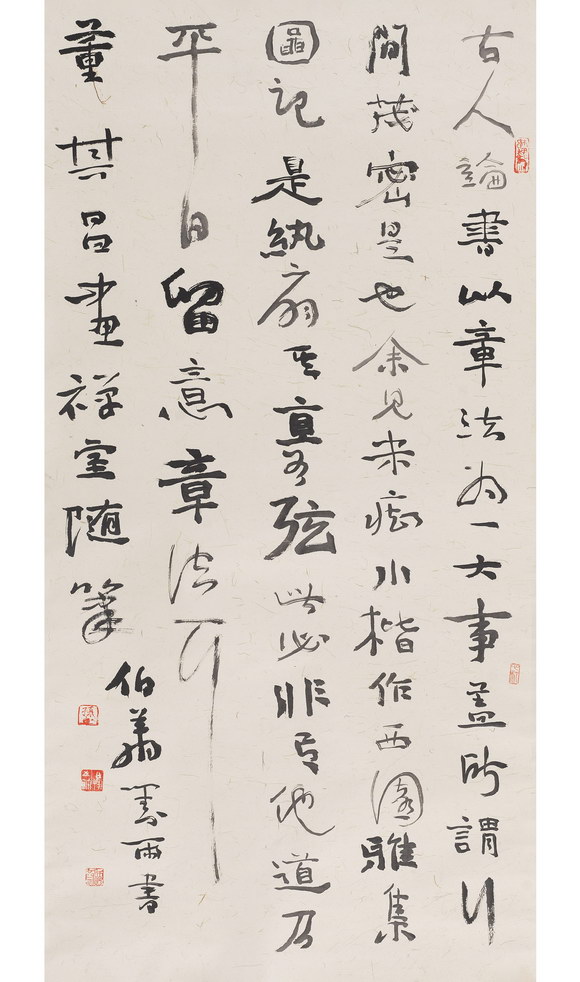 古人論書以章法為一大事蓋所謂行
間茂密是也余見米痴小楷作西園雅集
圖記是紈扇其直如弦此必非有他道乃
平日留意章法耳
董其昌畫禅室随筆
伯雨書